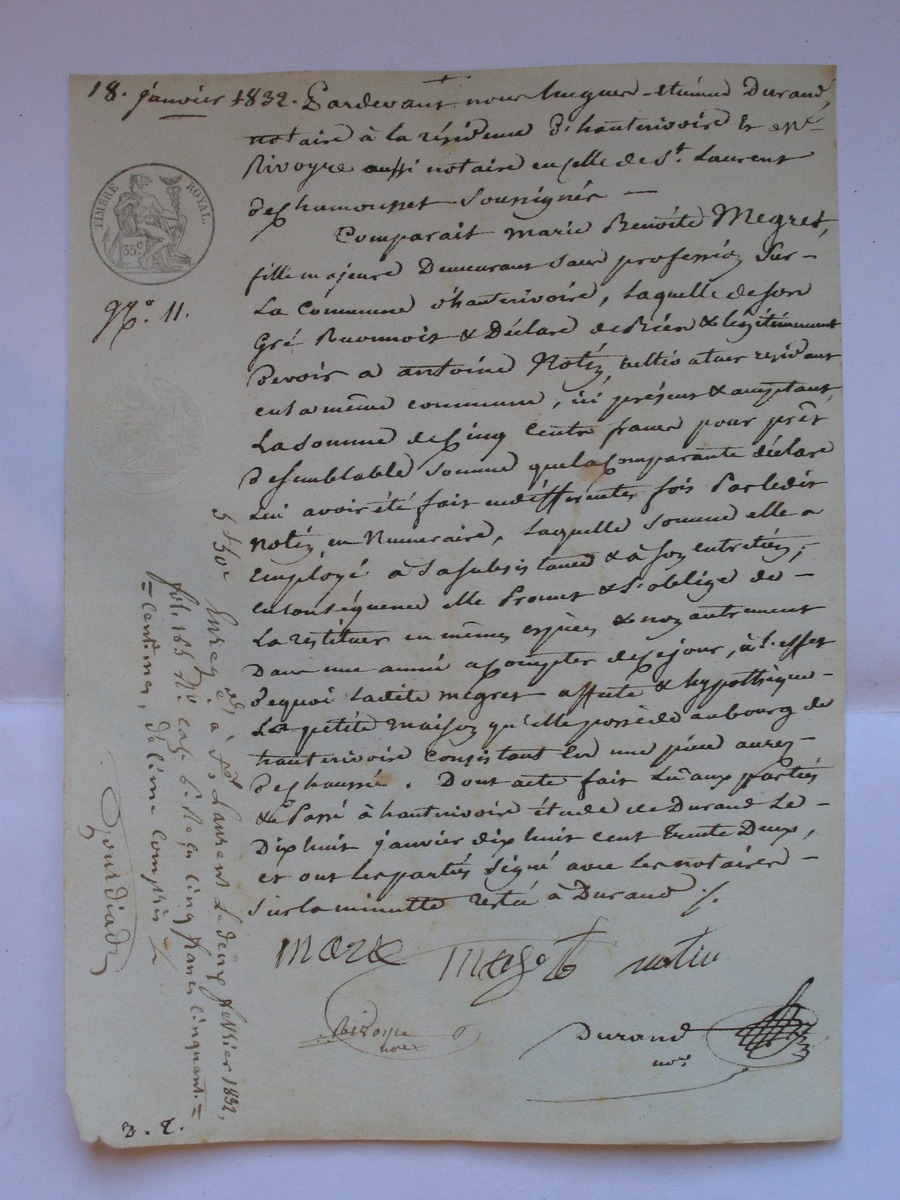 18. janvier 1832. Pardevant nous hugues-étienne Durand,
notaire à la résidence d'hauterivoire & me
Rivoyre aussi notaire en celle de St. Laurent
de chamousset soussignés —
TIMBRE ROYAL.
35c
Comparait marie Benoite Megret,
fille majeure Demeurant sans profession sur-
La Commune d'hauterivoire, Laquelle de son
No. 11.
Gré Reconnoit & Déclare de Bien & légitimement
Devoir a antoine Notin cultivateur residant
en la même commune, ici présent & acceptant
La somme de Cinq Cents francs pour prêt
De semblable somme que la Comparante déclare
Lui avoir été fait en différentes fois Par ledit
Notin en Numéraire, Laquelle somme elle a
Employé à sa subsistance & à son entretien;
en conséquence elle Promet & s'oblige de —
La restituer en mêmes espèces & non autrement
Dans une année a Compter de ce jour, à l'effet
De quoi Ladite megret affecte & hypothèque-
La petite maison qu'elle possède au bourg de
hauterivoire Consistant En une pièce au rez-
De chaussée. Dont acte fait Lu aux parties
& Passé à hauterivoire étude de Durand Le-
Dix huit janvier dix huit cent trente Deux,
et ont les parties signé avec Les notaires —
Sur la minutte restée à Durand ./.
mare mege notin
Rivoyre
notre
Durand
nore.
5f 50c Enreg à St Laurent Le deux fevrier 1832,
fol. 185 Vo case 6. Reçu cinq francs cinquante =
= centimes, décime compris
3. 2.